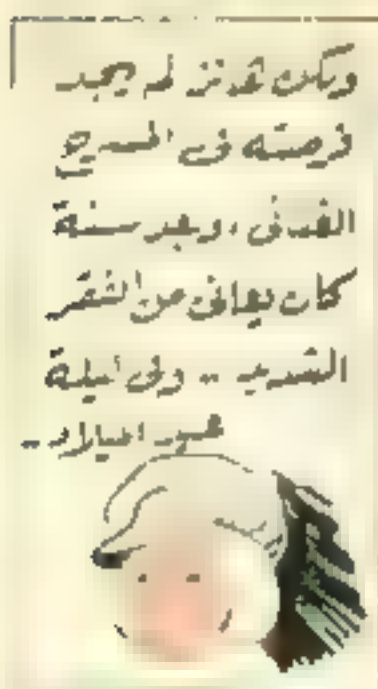 ولكن فدنز لم يجد
فرصته فى المسرح
الغنائى ، وبعد سنة
كان يعانى من الفقر
الشديد .. وفى ليلة
عيد الميلاد ..